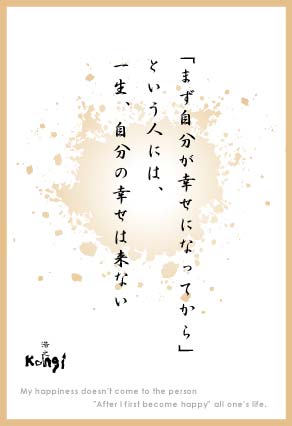 「まず自分が幸せになってから」
という人には、
一生、自分の幸せは来ない
Kongi
My happiness doesn't come to the person
"After I first become happy" all one's life.